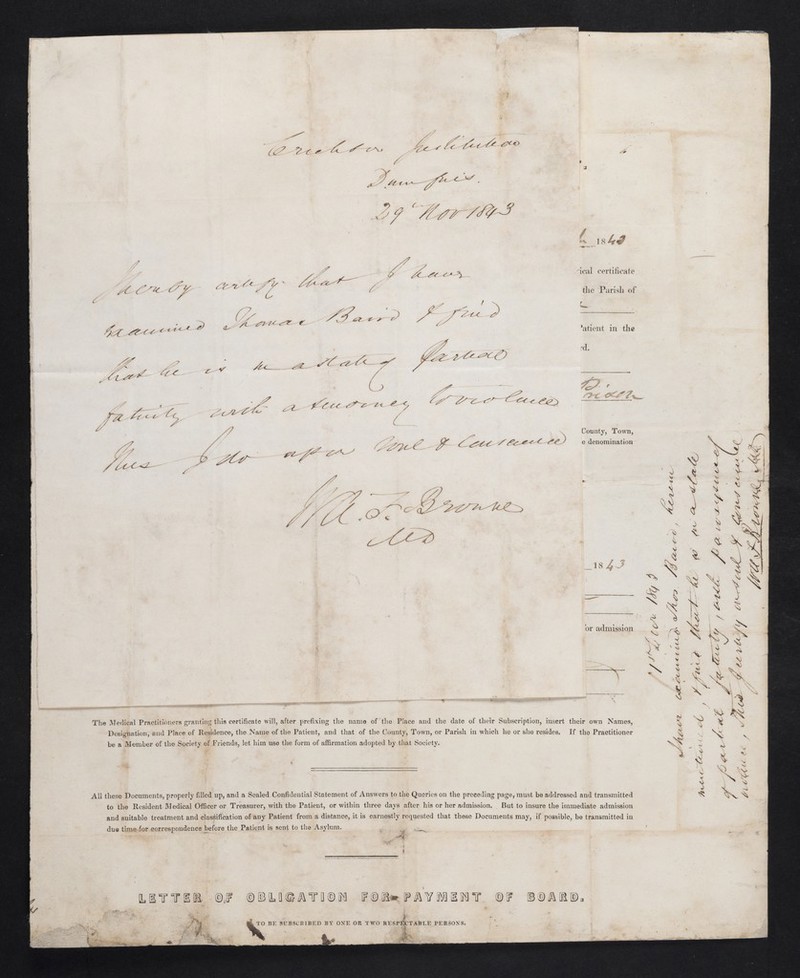 Crichton Institution
Dumfries.
29th Nov 1843
I hereby certify that I have
examined Thomas Baird & find
that he is in a state of partial
fatuity with a tendency to violence
This I do upon soul & conscience
W. A. F. Browne
MD
1843
ical certificate
the Parish of
'atient in the
d.
Prison
County, Town,
e denomination
1843
or admission
Decr 1843
I have examined Thos Baird, herein
mentioned, & find that he is in a state
of partial fatuity, with paroxysms of
violence, This I certify on soul & conscience
W. A. F. Browne, MD
The Medical Practitioners granting this certificate will, after prefixing the name of the Place and the date of their Subscription, insert their own Names,
Designation, and Place of Residence, the Name of the Patient, and that of the County, Town, or Parish in which he or she resides. If the Practitioner
be a Member of the Society of Friends, let him use the form of affirmation adopted by that Society.
All these Documents, properly filled up, and a Sealed Confidential Statement of Answers to the Queries on the preceding page, must be addressed and transmitted
to the Resident Medical Officer or Treasurer, with the Patient, or within three days after his or her admission. But to insure the immediate admission
and suitable treatment and classification of any Patient from a distance, it is earnestly requested that these Documents may, if possible, be transmitted in
due time for correspondence before the Patient is sent to the Asylum.
LETTER OF OBLIGATION FOR PAYMENT OF BOARD.
TO BE SUBSCRIBED BY ONE OR TWO RESPECTABLE PERSONS.